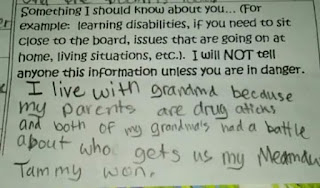 Something I should know about you... (For
example: learning disabilities, if you need to sit
close to the board, issues that are going on at
home, living situations, etc.). I will NOT tell
anyone this information unless you are in danger.
I live with grandma because
my parents are drug aticns
and both of my grandma's had a battle
about who gets us my Meamdw
Tammy won.